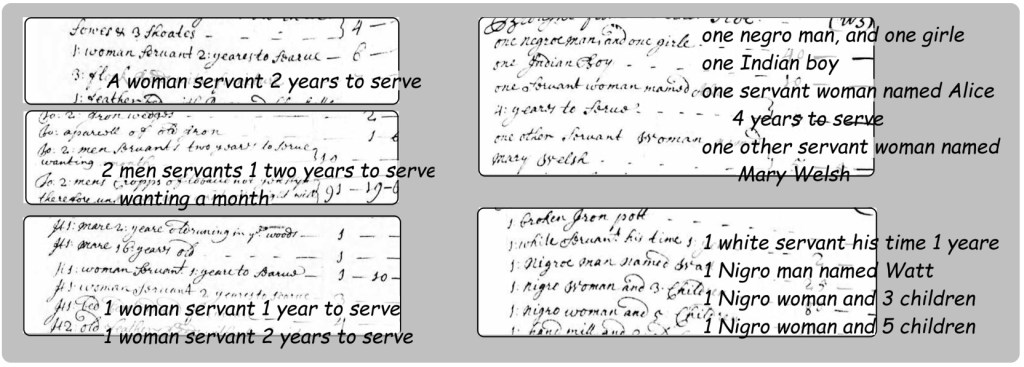 Sowes & 3 Shoates } 4 —
1: woman Servant 2: yeares to Searve — 6 —
3:
A woman servant 2 years to serve
1: feather
To: 2: Iron wedges 2 —
To: aparcell of old Iron 1
To: 2: men Servants two years to Serve
wanting
2 men servants 1 two years to serve
To: 2: mens Cropps of 91 — 19 —
wanting a month
therefore
It 1: mare 2: yeare old runing in ye woods — 1 —
It 1: mare 16: years old 1 —
It 1: woman Servant 1: yeare to Searve — 1 — 10 —
It 1: woman Servant 2 yeares to Serve
1 woman servant 1 year to serve
1 woman servant 2 years to serve
one negroe man, and one girle
one negro man, and one girle
one Indian Boy
one Indian boy
one Servant woman named
one servant woman named Alice
4: years to Serve
4 years to serve
one other Servant Woman
one other servant woman named
Mary Welsh
Mary Welsh
1 broken Iron pott
1: white Servant his time 1
1 white servant his time 1 yeare
1: Nigroe man named
1 Nigro man named Watt
1: nigro Woman and 3: Child
1 Nigro woman and 3 children
1: nigro woman and 5 Child
1 Nigro woman and 5 children
1: hand mill and